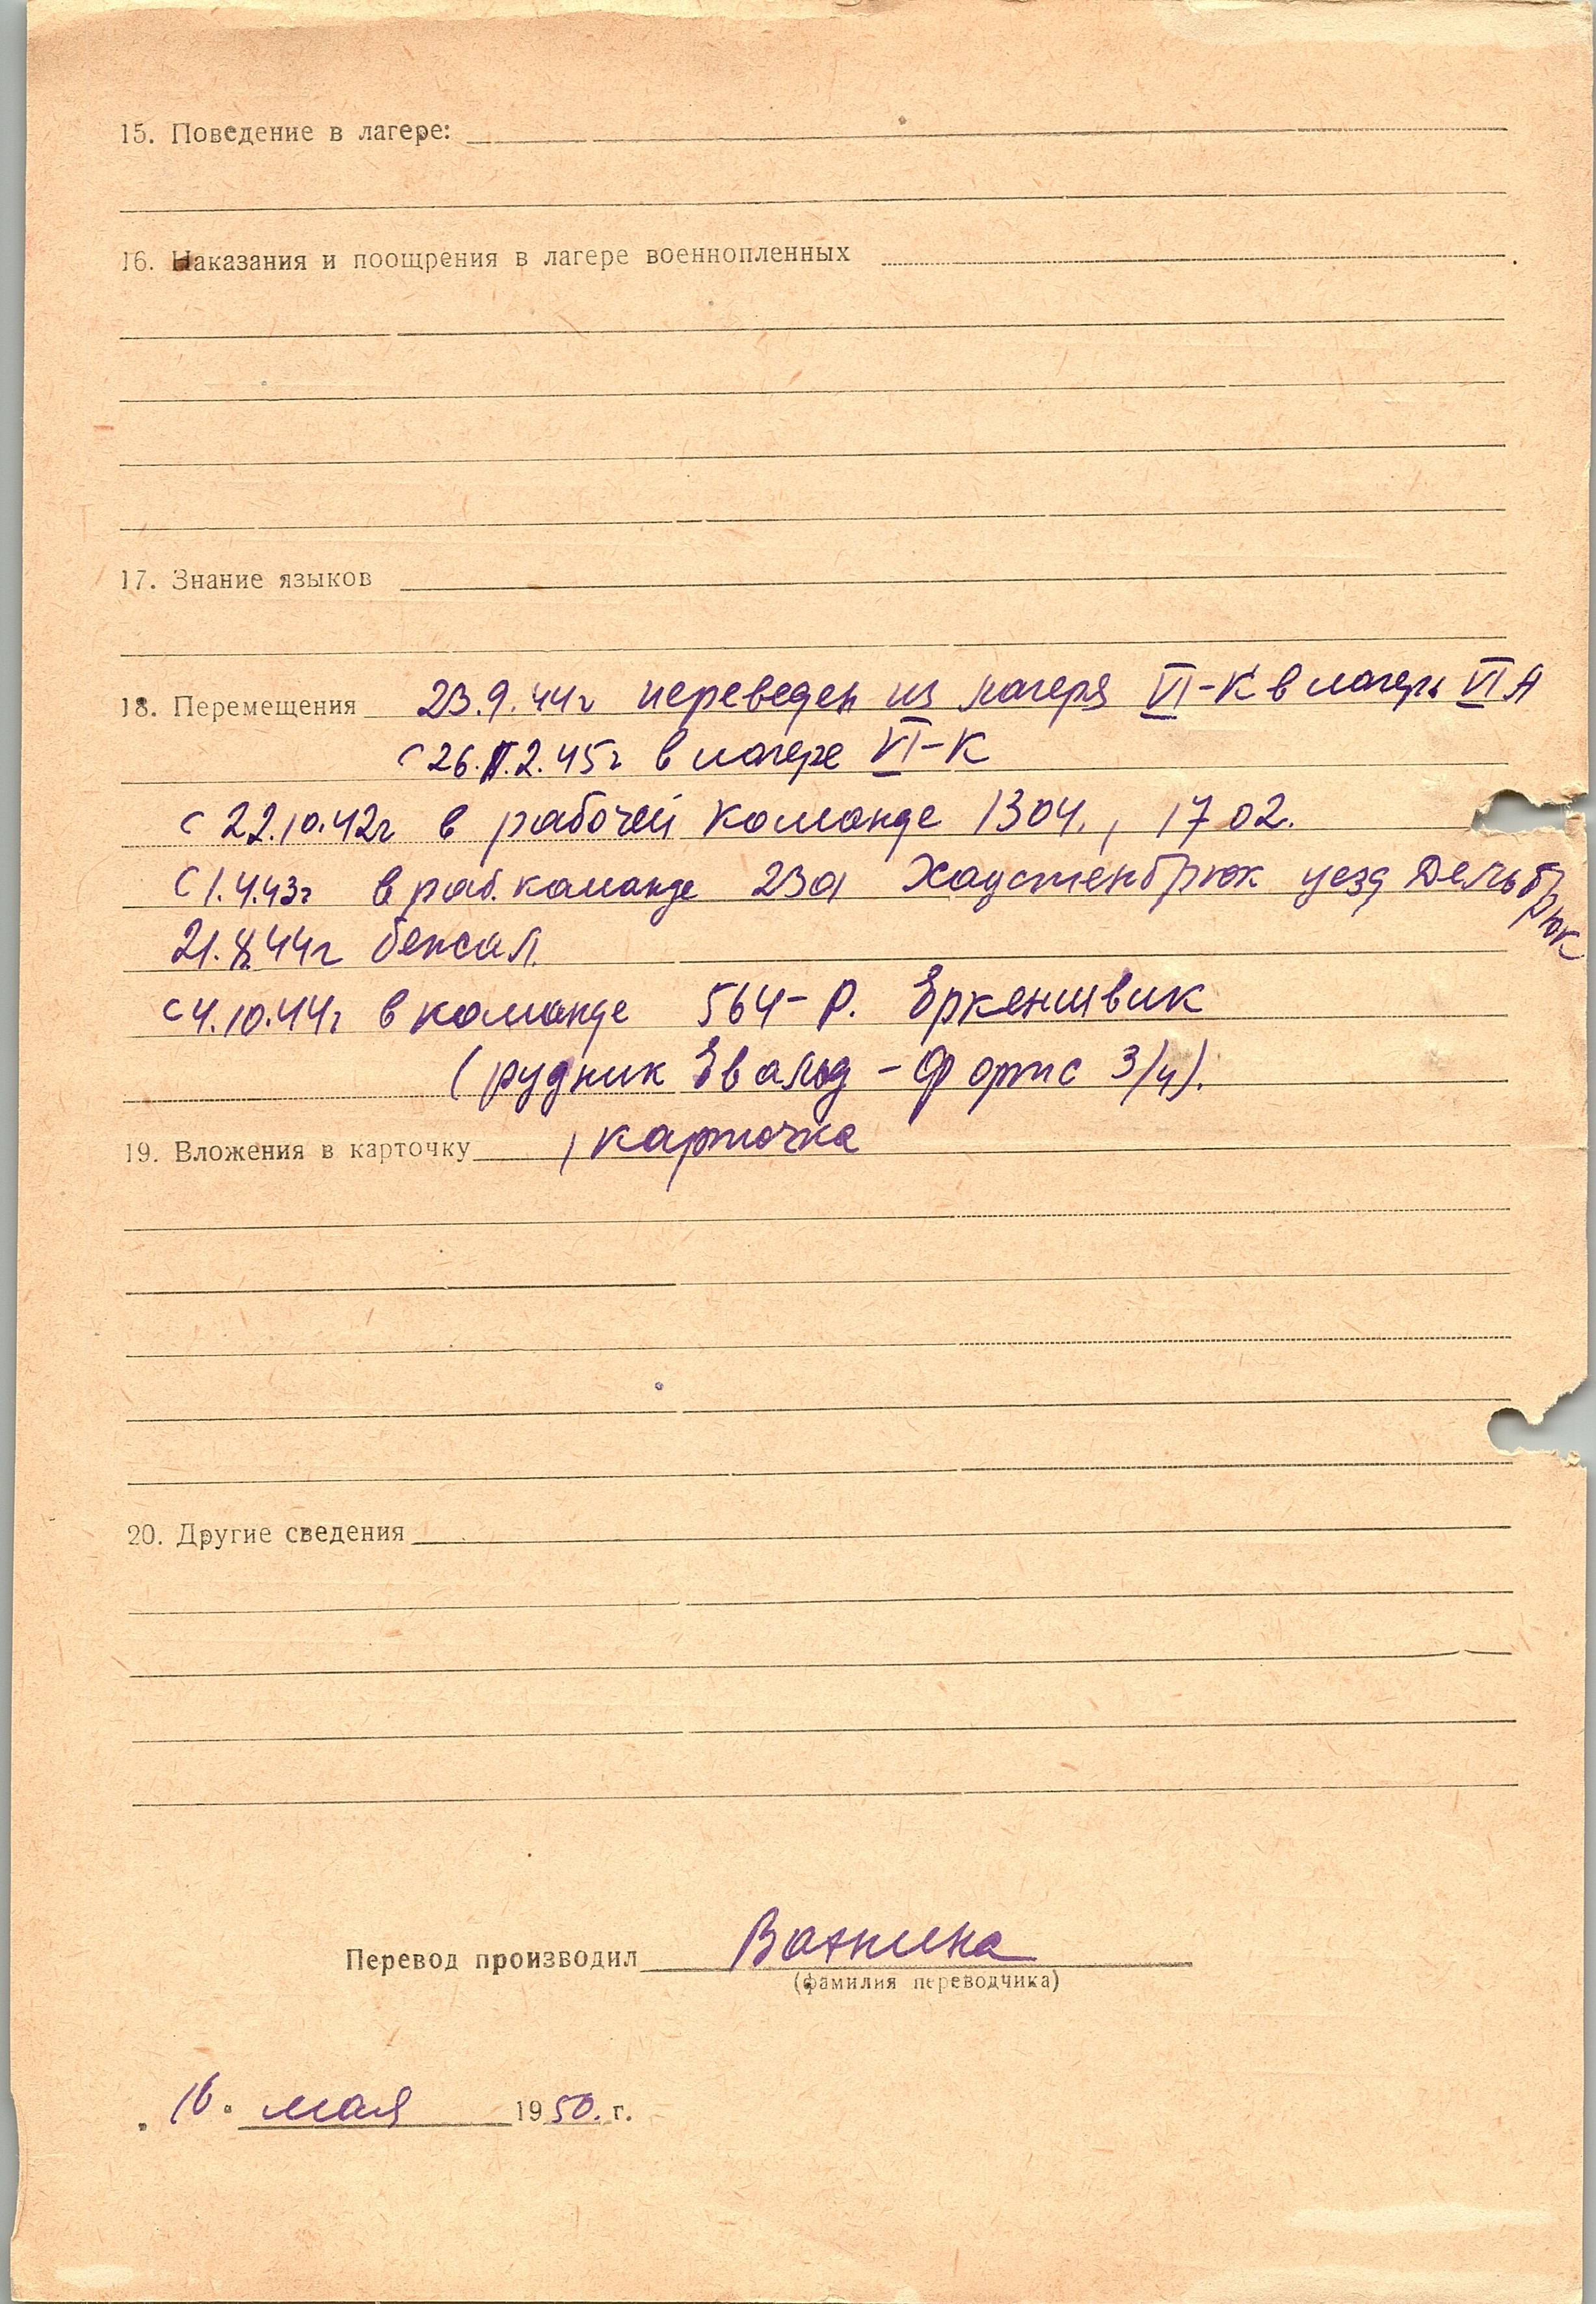 15. Поведение в лагере:
16. Наказания и поощрения в лагере военнопленных
17. Знание языков
18. Перемещения 23.9.44г переведен из лагеря VI-К в лагерь VI А
с 26.2.45г в лагере VI-К
с 22.10.42г в рабочей команде 1304., 1702.
С 1.4.43г в раб. команде 23а Хаустенбрюк уезд Дельбрюк
21.8.44г бежал.
с 4.10.44г в команде 564-Р. Еркеншвик
(рудник Евальд-Фортс 3/4).
19. Вложения в карточку 1 карточка
20. Другие сведения
Перевод производил
(фамилия переводчика)
16. мая 1950. г.